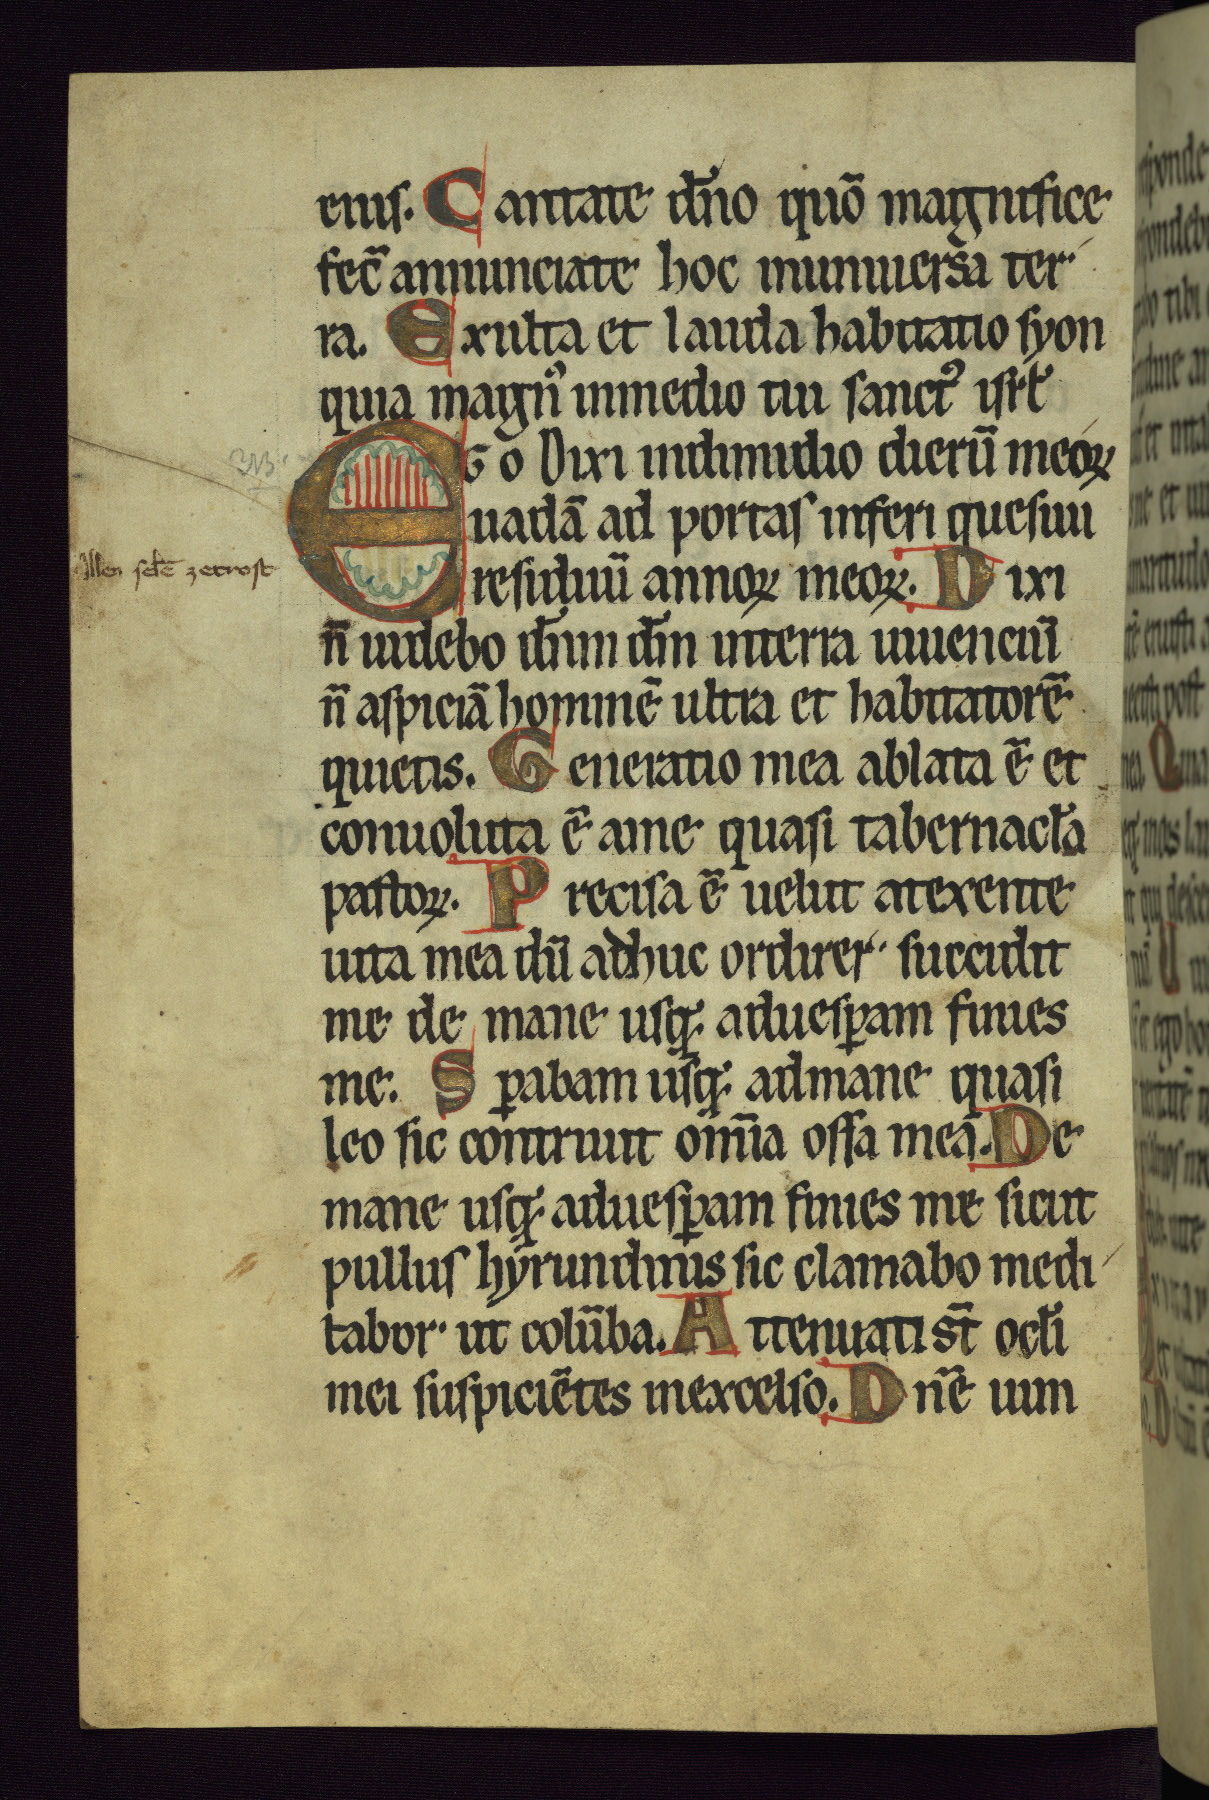 eius. Cantate dn̄o quō magnifice
fec̄ annunciate hoc inuniuersa ter
ra. Exulta et lauda habitatio syon
quia magn᾿ inmedio tui sanct᾿ isrl̄
EGo Dixi indimidio dierū meoꝝ
uadā ad portas inferi quesiui
Allen selē zetrost
residuū annoꝝ meoꝝ. Dixi
n̄ uidebo dn̄m dm̄ interra uiuenciū
n̄ aspiciā hominē ultra et habitatorē
quietis. Generatio mea ablata ē et
conuoluta ē ame quasi tabernacl̄a
pastoꝝ. Precisa ē uelut atexente
uita mea dū adhuc ordirer succidit
me de mane usqꝫ aduesꝑam finies
me. Sꝑabam usqꝫ admane quasi
leo sic contriuit om̄ia ossa meā. De
mane usqꝫ aduesꝑam finies me sicut
pullus hyrundinis sic clamabo medi
tabor ut colūba. Attenuati st̄ ocl̄i
mei suspiciētes inexcelso. Dn̄e uim